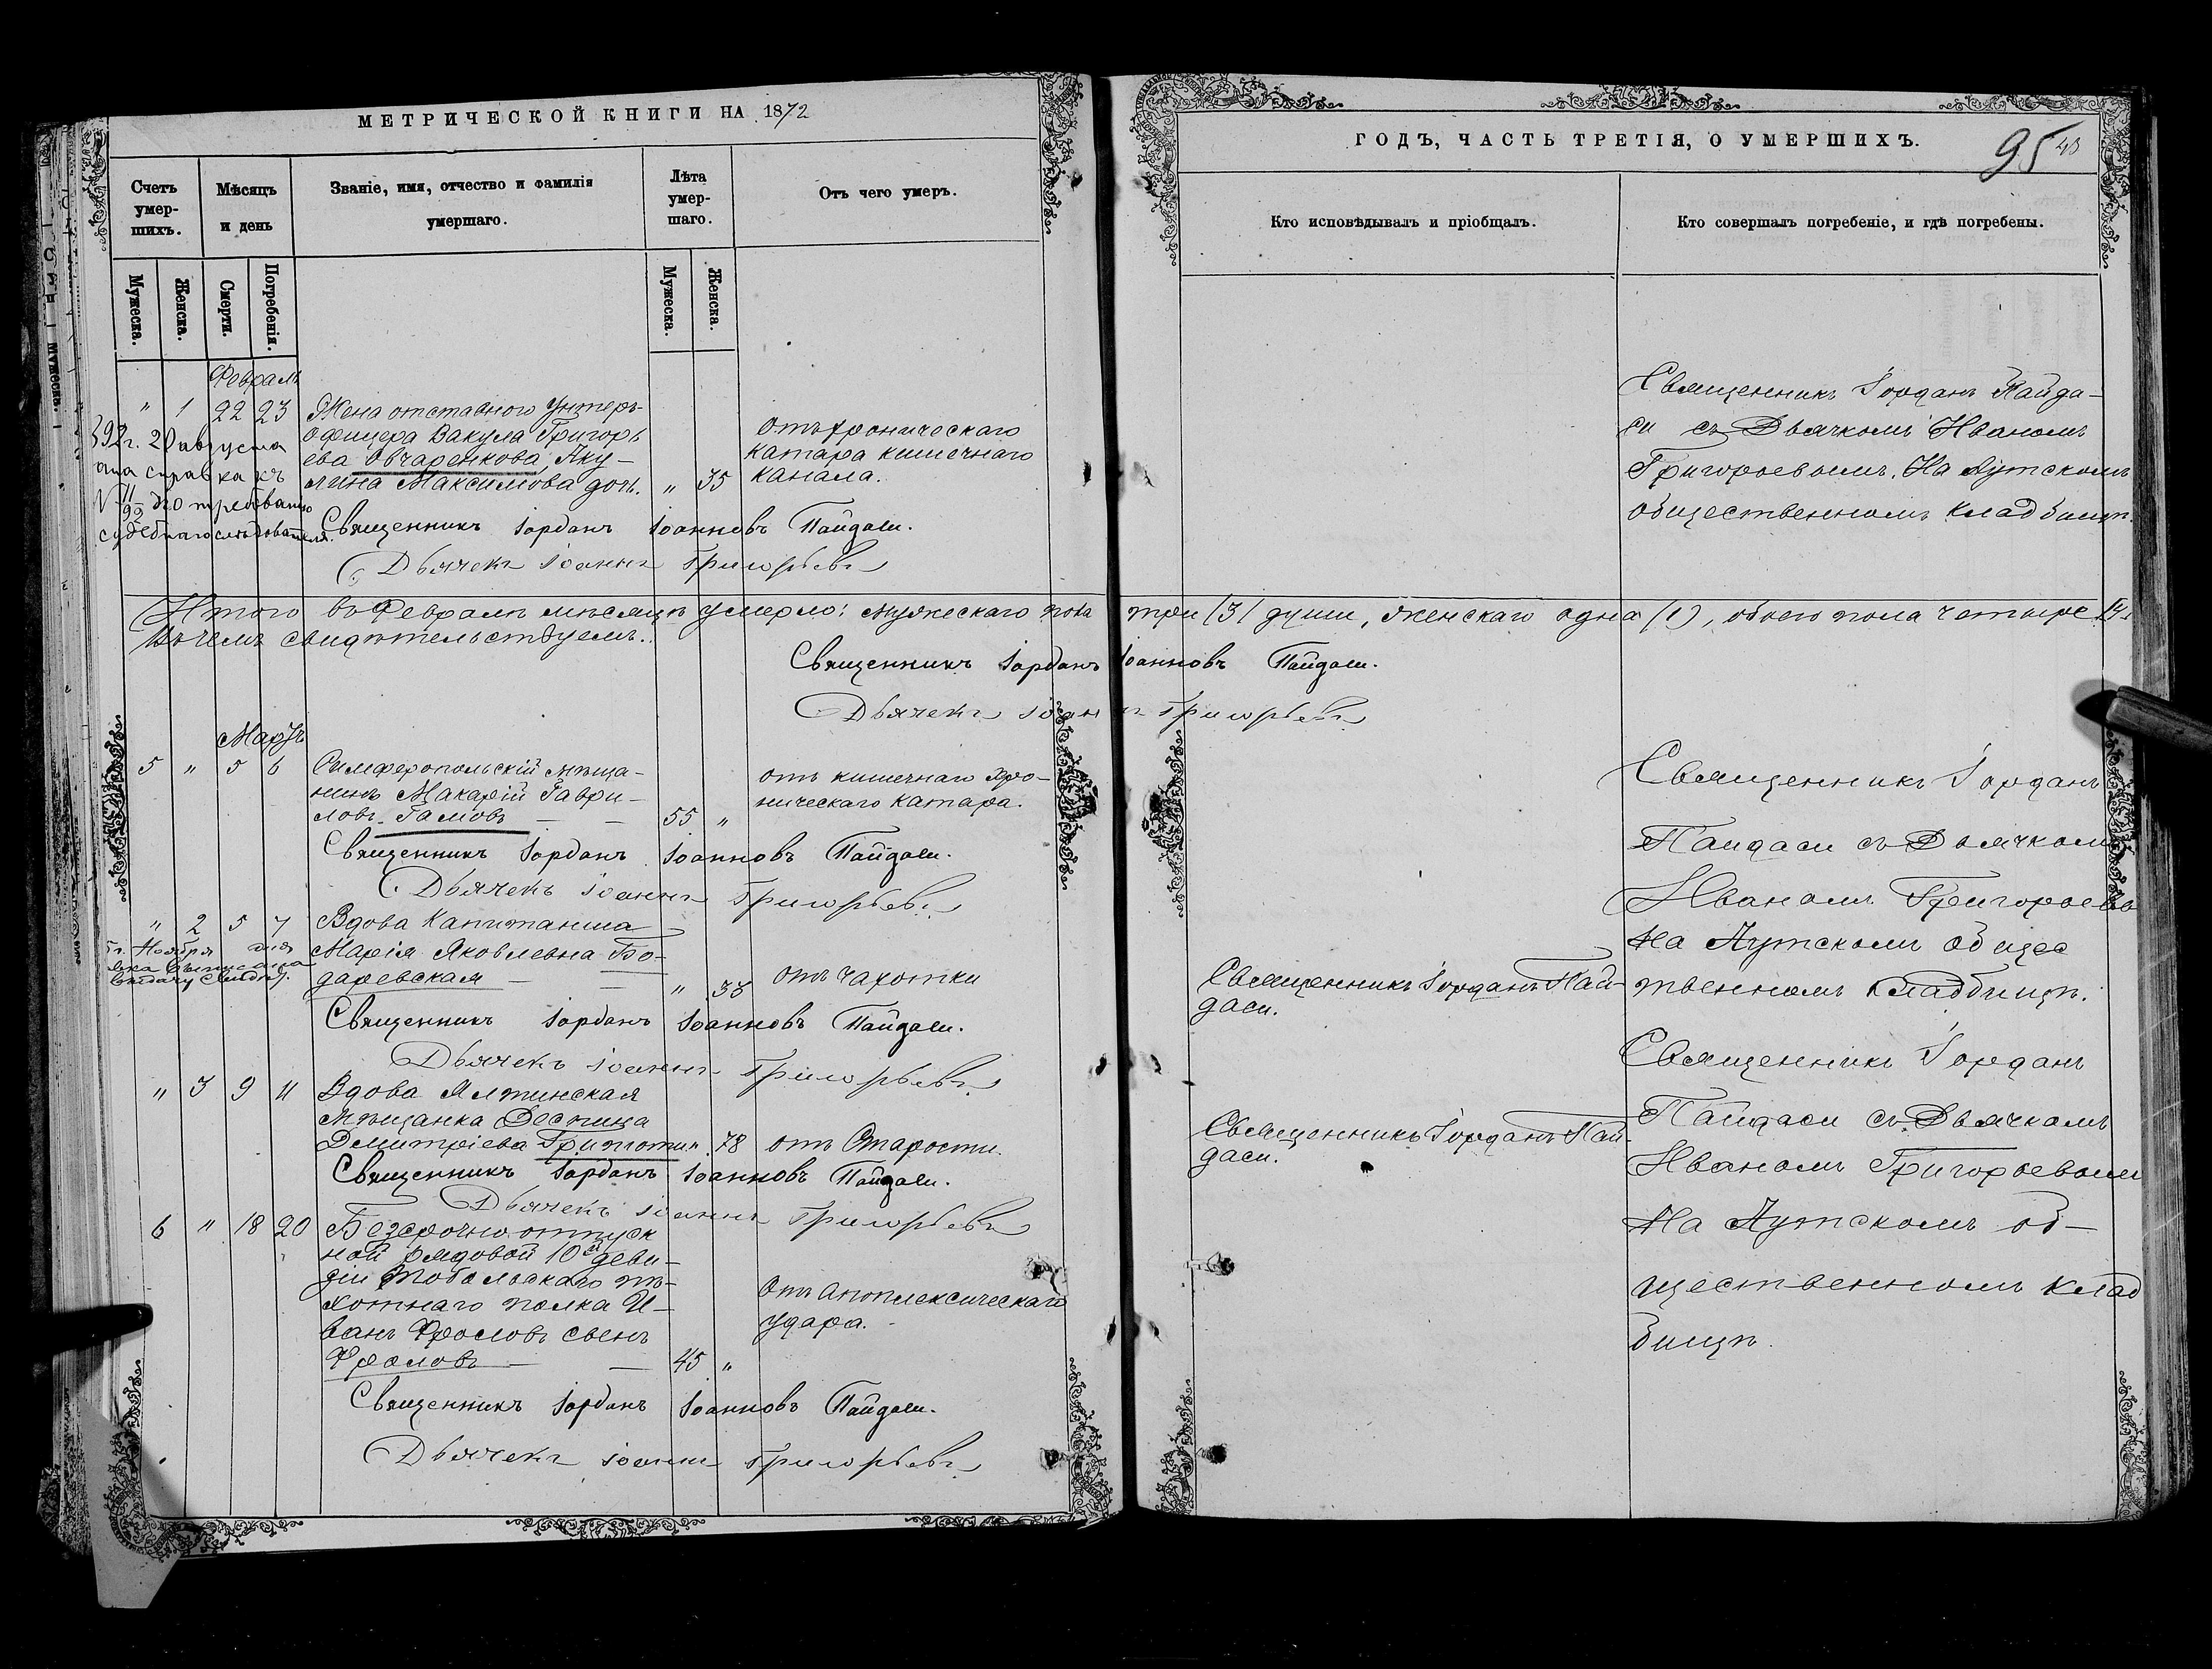 МЕТРИЧЕСКОЙ КНИГИ НА 1872
Счетъ умер-шихъ.
Мѣсяцъ и день
Званіе, имя, отчество и фамилія умершаго.
Лѣта умер-шаго.
Отъ чего умеръ.
Мужеска.
Женска.
Смерти.
Погребенія.
Мужеска.
Женска.
Февраль
" 1 22 23 Жена отставного Унтеръ-
офицера Вакула Григорь
ева Овчаренкова, Аку-
лина Максимова дочь. " 35
отъ хроническаго
катара кишечнаго
канала.
892 г. 20 августа
справка къ
по требванію
судебнаго слѣдователя.
Священникъ Іорданъ Іоанновъ Пайдаси.
Дьячекъ Іоаннъ Григорьевъ
Итого въ Февралѣ мѣсяцѣ умерло: мужескаго пола три (3) души, женскаго одна (1), обоего пола четыре (4)
Въ чемъ свидѣтельствуемъ.
Священникъ Іорданъ Іоанновъ Пайдаси.
Дьячекъ Іоаннъ Григорьевъ
Мартъ
5 " 5 6 Симферопольскій мѣща-
нинъ Макарій Гаври-
ловъ Гамовъ — — 55 "
отъ кишечнаго хро-
ническаго катара.
Священникъ Іорданъ Іоанновъ Пайдаси.
Дьячекъ Іоаннъ Григорьевъ
" 2 5 7 Вдова Капитанша
Марія Яковлевна Бо-
даревская — — " 33
отъ чахотки
Ноября
выписана
Священникъ Іорданъ Іоанновъ Пайдаси.
Дьячекъ Іоаннъ Григорьевъ
" 3 9 11 Вдова Ялтинская
мѣщанка Деспина
Дмитріева 78 отъ Старости.
Священникъ Іорданъ Іоанновъ Пайдаси.
Дьячекъ Іоаннъ Григорьевъ
6 " 18 20 Безсрочно отпуск
ной рядовой 10й деви-
зіи Тобольскаго пѣ-
хотнаго полка И-
ванъ Фроловъ сынъ
Фроловъ — — 45 "
Отъ Апоплексическаго
удара.
Священникъ Іорданъ Іоанновъ Пайдаси.
Дьячекъ Іоаннъ Григорьевъ
ГОДЪ, ЧАСТЬ ТРЕТІЯ, О УМЕРШИХЪ.
95
Кто исповѣдывалъ и пріобщалъ.
Кто совершалъ погребеніе, и гдѣ погребены.
Священникъ Іорданъ Пайда-
си съ Дьячкомъ Иваномъ
Григорьевымъ. На Аутскомъ
общественномъ кладбищѣ.
Священникъ Іорданъ
Пайдаси съ Дьячкомъ
Иваномъ Григорьевы
На Аутскомъ общес
твенномъ кладбищѣ.
Священникъ Іорданъ Пай-
даси.
Священникъ Іорданъ
Пайдаси съ Дьячкомъ
Иваномъ Григорьевымъ
На Аутскомъ об-
щественномъ клад
бищѣ.
Священникъ Іорданъ Пай-
даси.